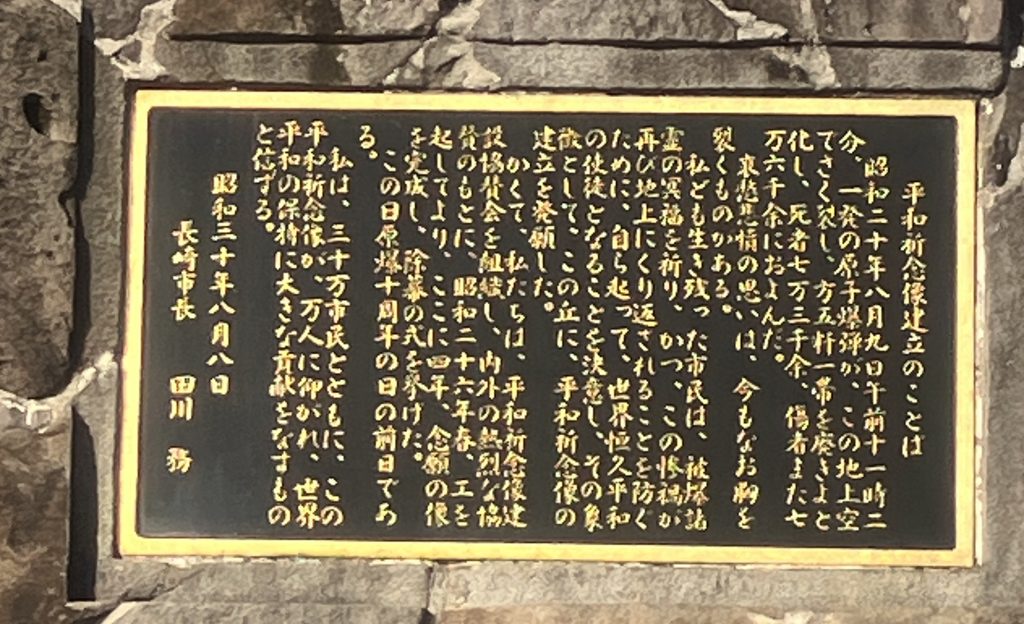 平和祈念像建立のことば
昭和二十年八月九日午前十一時二
分、一発の原子爆弾が、この地上空
でさく裂し、方五粁一帯を廃きょと
化し、死者七万三千余、傷者また七
万六千余におよんだ。
哀愁悲惜の思いは、今もなお胸を
裂くものがある。
私ども生き残った市民は、被爆諸
霊の冥福を祈り、かつ、この惨禍が
再び地上にくり返されることを防ぐ
ために、自ら起って、世界恒久平和
の使徒となることを決意し、その象
徴として、この丘に、平和祈念像の
建立を発願した。
かくて、私たちは、平和祈念像建
設協賛会を組織し、内外の熱烈な協
賛のもとに、昭和二十六年春、工を
起してより、ここに四年、念願の像
を完成し、除幕の式を挙げた。
この日原爆十周年の日の前日であ
る。
私は、三十万市民とともに、この
平和祈念像が、万人に仰がれ、世界
平和の保持に大きな貢献をなすもの
と信ずる。
昭和三十年八月八日
長崎市長 田川 務